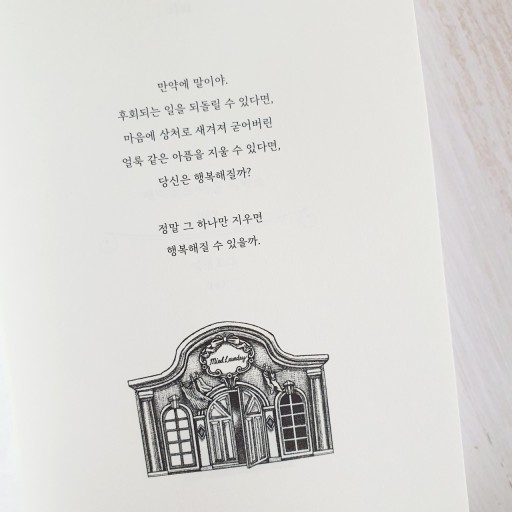 만약에 말이야.
후회되는 일을 되돌릴 수 있다면,
마음에 상처로 새겨져 굳어버린
얼룩 같은 아픔을 지울 수 있다면,
당신은 행복해질까?
정말 그 하나만 지우면
행복해질 수 있을까.
Mind Laundry